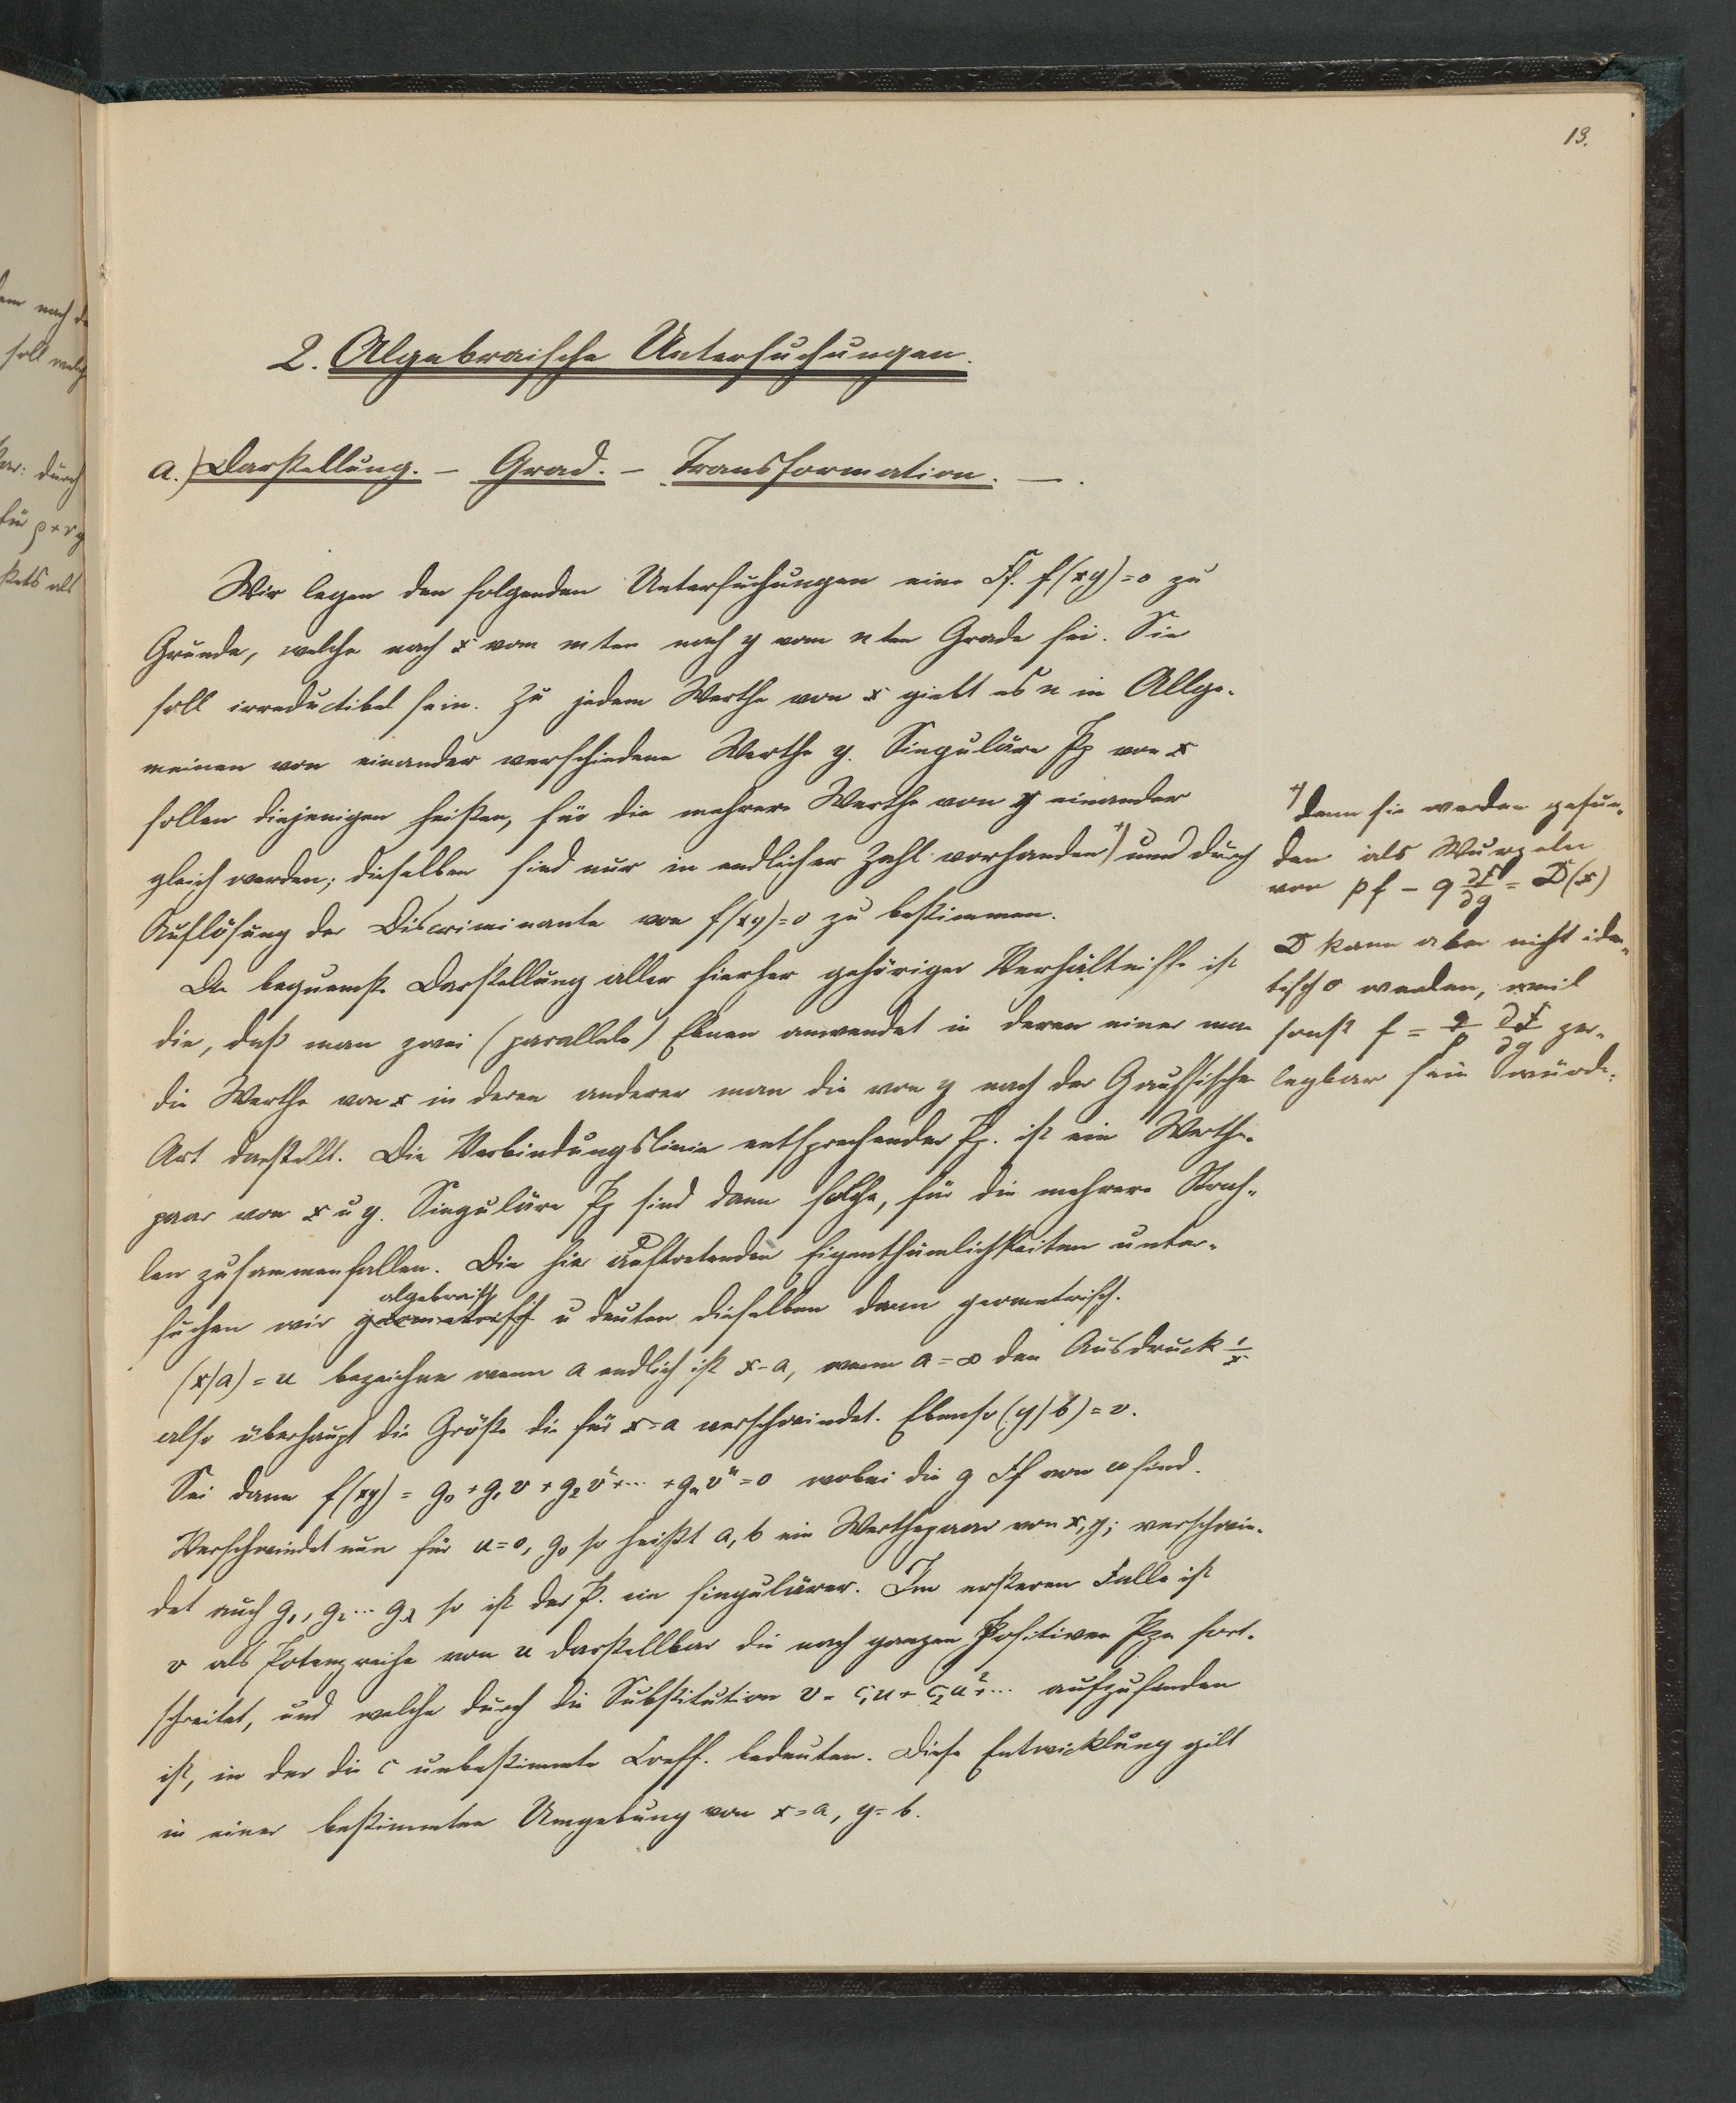 13.
2. Algebraische Untersuchungen.
a.) Darstellung. — Grad. — Transformation. —.
Wir legen den folgenden Untersuchungen eine Ff. f(xy)=0 zu
Grunde, welche nach x vom mten nach y vom nten Grade sei. Sie
soll irreductibel sein. Zu jedem Werthe von x giebt es n im Allge-
meinen von einander verschiedene Werthe y. Singuläre Pp von x
sollen diejenigen heißen, für die mehrere Werthe von y einander
gleich werden; dieselben sind nur in endlicher Zahl vorhanden*) und durch
Auflösung der Discriminante von f(xy)=0 zu bestimmen.
Die bequemste Darstellung aller hierher gehörigen Verhältnisse ist
die, daß man zwei (parallele) Ebnen anwendet in deren einer man
die Werthe von x in deren anderer man die von y nach der Gaußische
Art darstellt. Die Verbindungslinie entsprechender Pp. ist ein Werthe-
paar von x u y. Singuläre Pp sind dann solche, für die mehrere Strah-
len zusammenfallen. Die hier auftretenden Eigenthümlichkeiten unter-
algebraisch
suchen wir geometrisch u deuten dieselben dann geometrisch.
(x/a)=u bezeichne wenn a endlich ist x-a, wenn a=∞ den Ausdruck 1/x
also überhaupt die Größe die für x=a verschwindet. Ebenso (y/b)=v.
Sei dann f(xy) = g₀+g₁v+g₂v²+...+gₙvⁿ=0 wobei die g Ff von u sind.
Verschwindet nun für u=0, g₀ so heißt a, b ein Werthepaar von x,y; verschwin-
det auch g₁, g₂... gλ so ist der P. ein singulärer. Im ersteren Falle ist
v als Potenzreihe von u darstellbar die nach ganzen positiven Pzn fort-
schreitet, und welche durch die Substitution v = c₁u+c₂u²+... aufzufinden
ist, in der die c unbestimmte Coeff. bedeuten. Diese Entwicklung gilt
in einer bestimmten Umgebung von x=a, y=b.
*) denn sie werden gefun-
den als Wurzeln
von pf - q ∂f/∂y = D(x)
D kann aber nicht iden-
tisch 0 werden, weil
sonst f = q/p ∂f/∂y zer-
legbar sein würde.